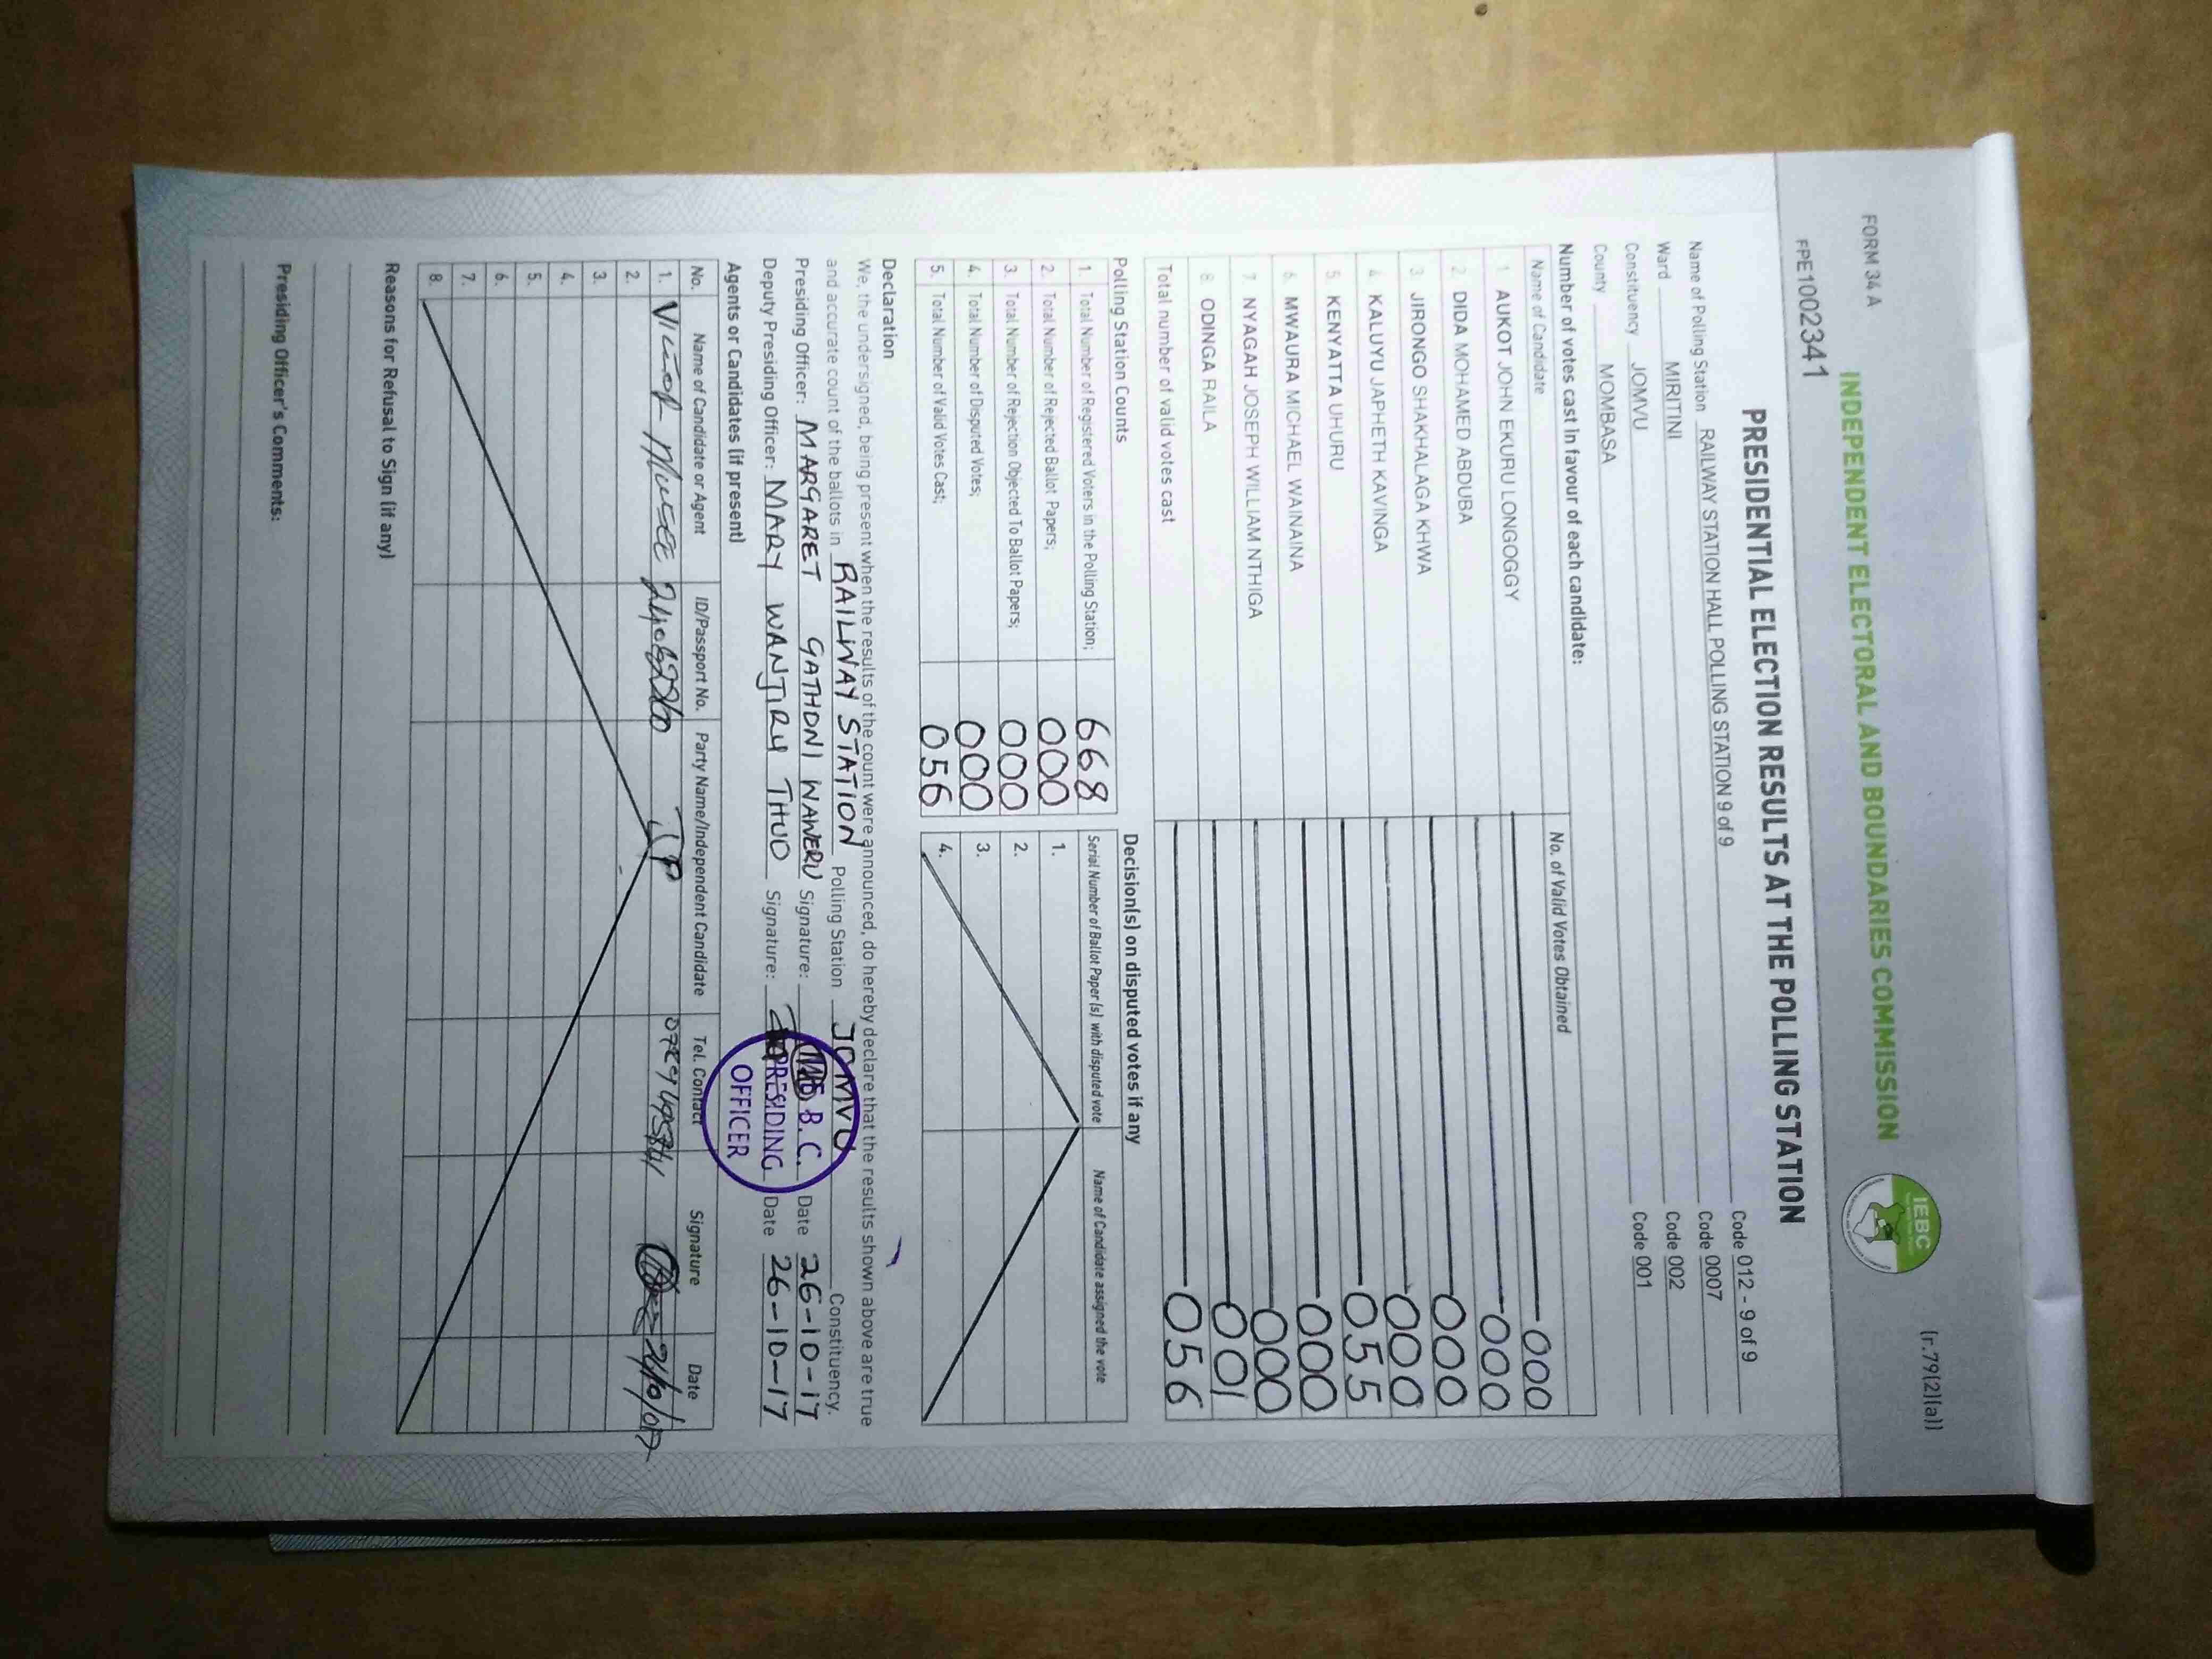 FORM 34 A
(r.79(2)(a))
INDEPENDENT ELECTORAL AND BOUNDARIES COMMISSION
IEBC
FPE1002341
PRESIDENTIAL ELECTION RESULTS AT THE POLLING STATION
Name of Polling Station RAILWAY STATION HALL POLLING STATION 9 of 9 Code 012 - 9 of 9
Ward MIRITINI Code 0007
Constituency JOMVU Code 002
County MOMBASA Code 001
Number of votes cast in favour of each candidate:
Name of Candidate No. of Valid Votes Obtained
1 AUKOT JOHN EKURU LONGOGGY 000
2 DIDA MOHAMED ABDUBA 000
3 JIRONGO SHAKHALAGA KHWA 000
4 KALUYU JAPHETH KAVINGA 000
5. KENYATTA UHURU 055
6. MWAURA MICHAEL WAINAINA 000
7 NYAGAH JOSEPH WILLIAM NTHIGA 000
8 ODINGA RAILA 001
Total number of valid votes cast 056
Polling Station Counts
1. Total Number of Registered Voters in the Polling Station; 668
2. Total Number of Rejected Ballot Papers; 000
3. Total Number of Rejection Objected To Ballot Papers; 000
4. Total Number of Disputed Votes; 000
5. Total Number of Valid Votes Cast; 056
Decision(s) on disputed votes if any
Serial Number of Ballot Paper (s) with disputed vote Name of Candidate assigned the vote
1.
2.
3.
4.
Declaration
We, the undersigned, being present when the results of the count were announced, do hereby declare that the results shown above are true
and accurate count of the ballots in RAILWAY STATION Polling Station JOMVU Constituency.
Presiding Officer: MARGARET GATHONI WAWERU Signature: Date 26-10-17
Deputy Presiding Officer: MARY WANJIRU THUO Signature: Date 26-10-17
B. C.
PRESIDING
OFFICER
Agents or Candidates (if present)
No. Name of Candidate or Agent ID/Passport No. Party Name/Independent Candidate Tel. Contact Signature Date
1. VICTOR JP
2.
3.
4.
5.
6.
7.
8.
Reasons for Refusal to Sign (if any)
Presiding Officer's Comments: